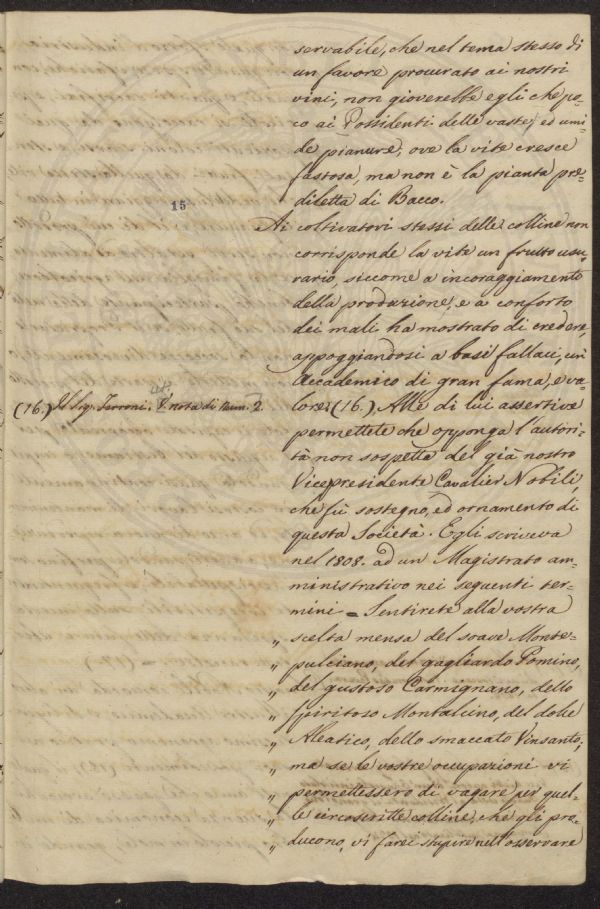 servabile, che nel tema stesso di
un favore procurato ai nostri
vini, non gioverebbe egli che po-
co ai Possidenti delle vaste, ed umi-
de pianure, ove la vite cresce
fastosa, ma non è la pianta pre-
diletta di Bacco.
15
Ai coltivatori stessi delle colline non
corrisponde la vite un frutto usu-
rario, siccome a incoraggiamento
della produzione, e a conforto
dei mali ha mostrato di credere,
appoggiandosi a basi fallaci, un
Accademico di gran fama, e va-
(16.) Il Sig. Ferroni. V. nota di Num. 2.
lore (16.). Alle di lui assertive
permettete che opponga l'autori-
tà non sospetta del già nostro
Vicepresidente Cavalier Nobili,
che fù sostegno, ed ornamento di
questa Società. Egli scriveva
nel 1808. ad un Magistrato am-
ministrativo nei seguenti ter-
mini = Sentirete alla vostra
„ scelta mensa del soave Monte-
„ pulciano, del gagliardo Pomino,
„ del gustoso Carmignano, dello
„ spiritoso Montalcino, del dolce
„ Aleatico, dello smaccato Vinsanto;
„ ma se le vostre occupazioni vi
„ permettessero di vagare per quel-
„ le circoscritte colline, che gli pro-
„ ducono, vi farei stupire nell'osservare